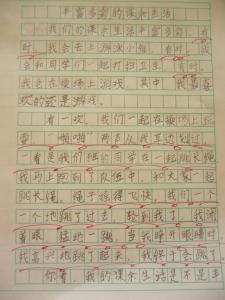 丰富多彩的课余生活
我们的课余生活丰富多彩，有
时，我会去上游泳小班，有时，我
会和同学们一起打扫卫生，有时，
我会在操场上游戏，其中，我最喜
欢的还是游戏。
有一次，我们一起在操场上玩
耍，“啪啪”两声从我耳边划过，
一看是我们班的同学在一起跳长绳
我马上跑到了队伍中，和大家一起
跳长绳，绳子摇得飞快，我们一个
一个地跳了过去，轮到我了，我闭
着眼，猛地一跳，当我睁开眼睛时
我高兴地跳了起来，我终于会跳了
你看，我的课余生活是不是丰